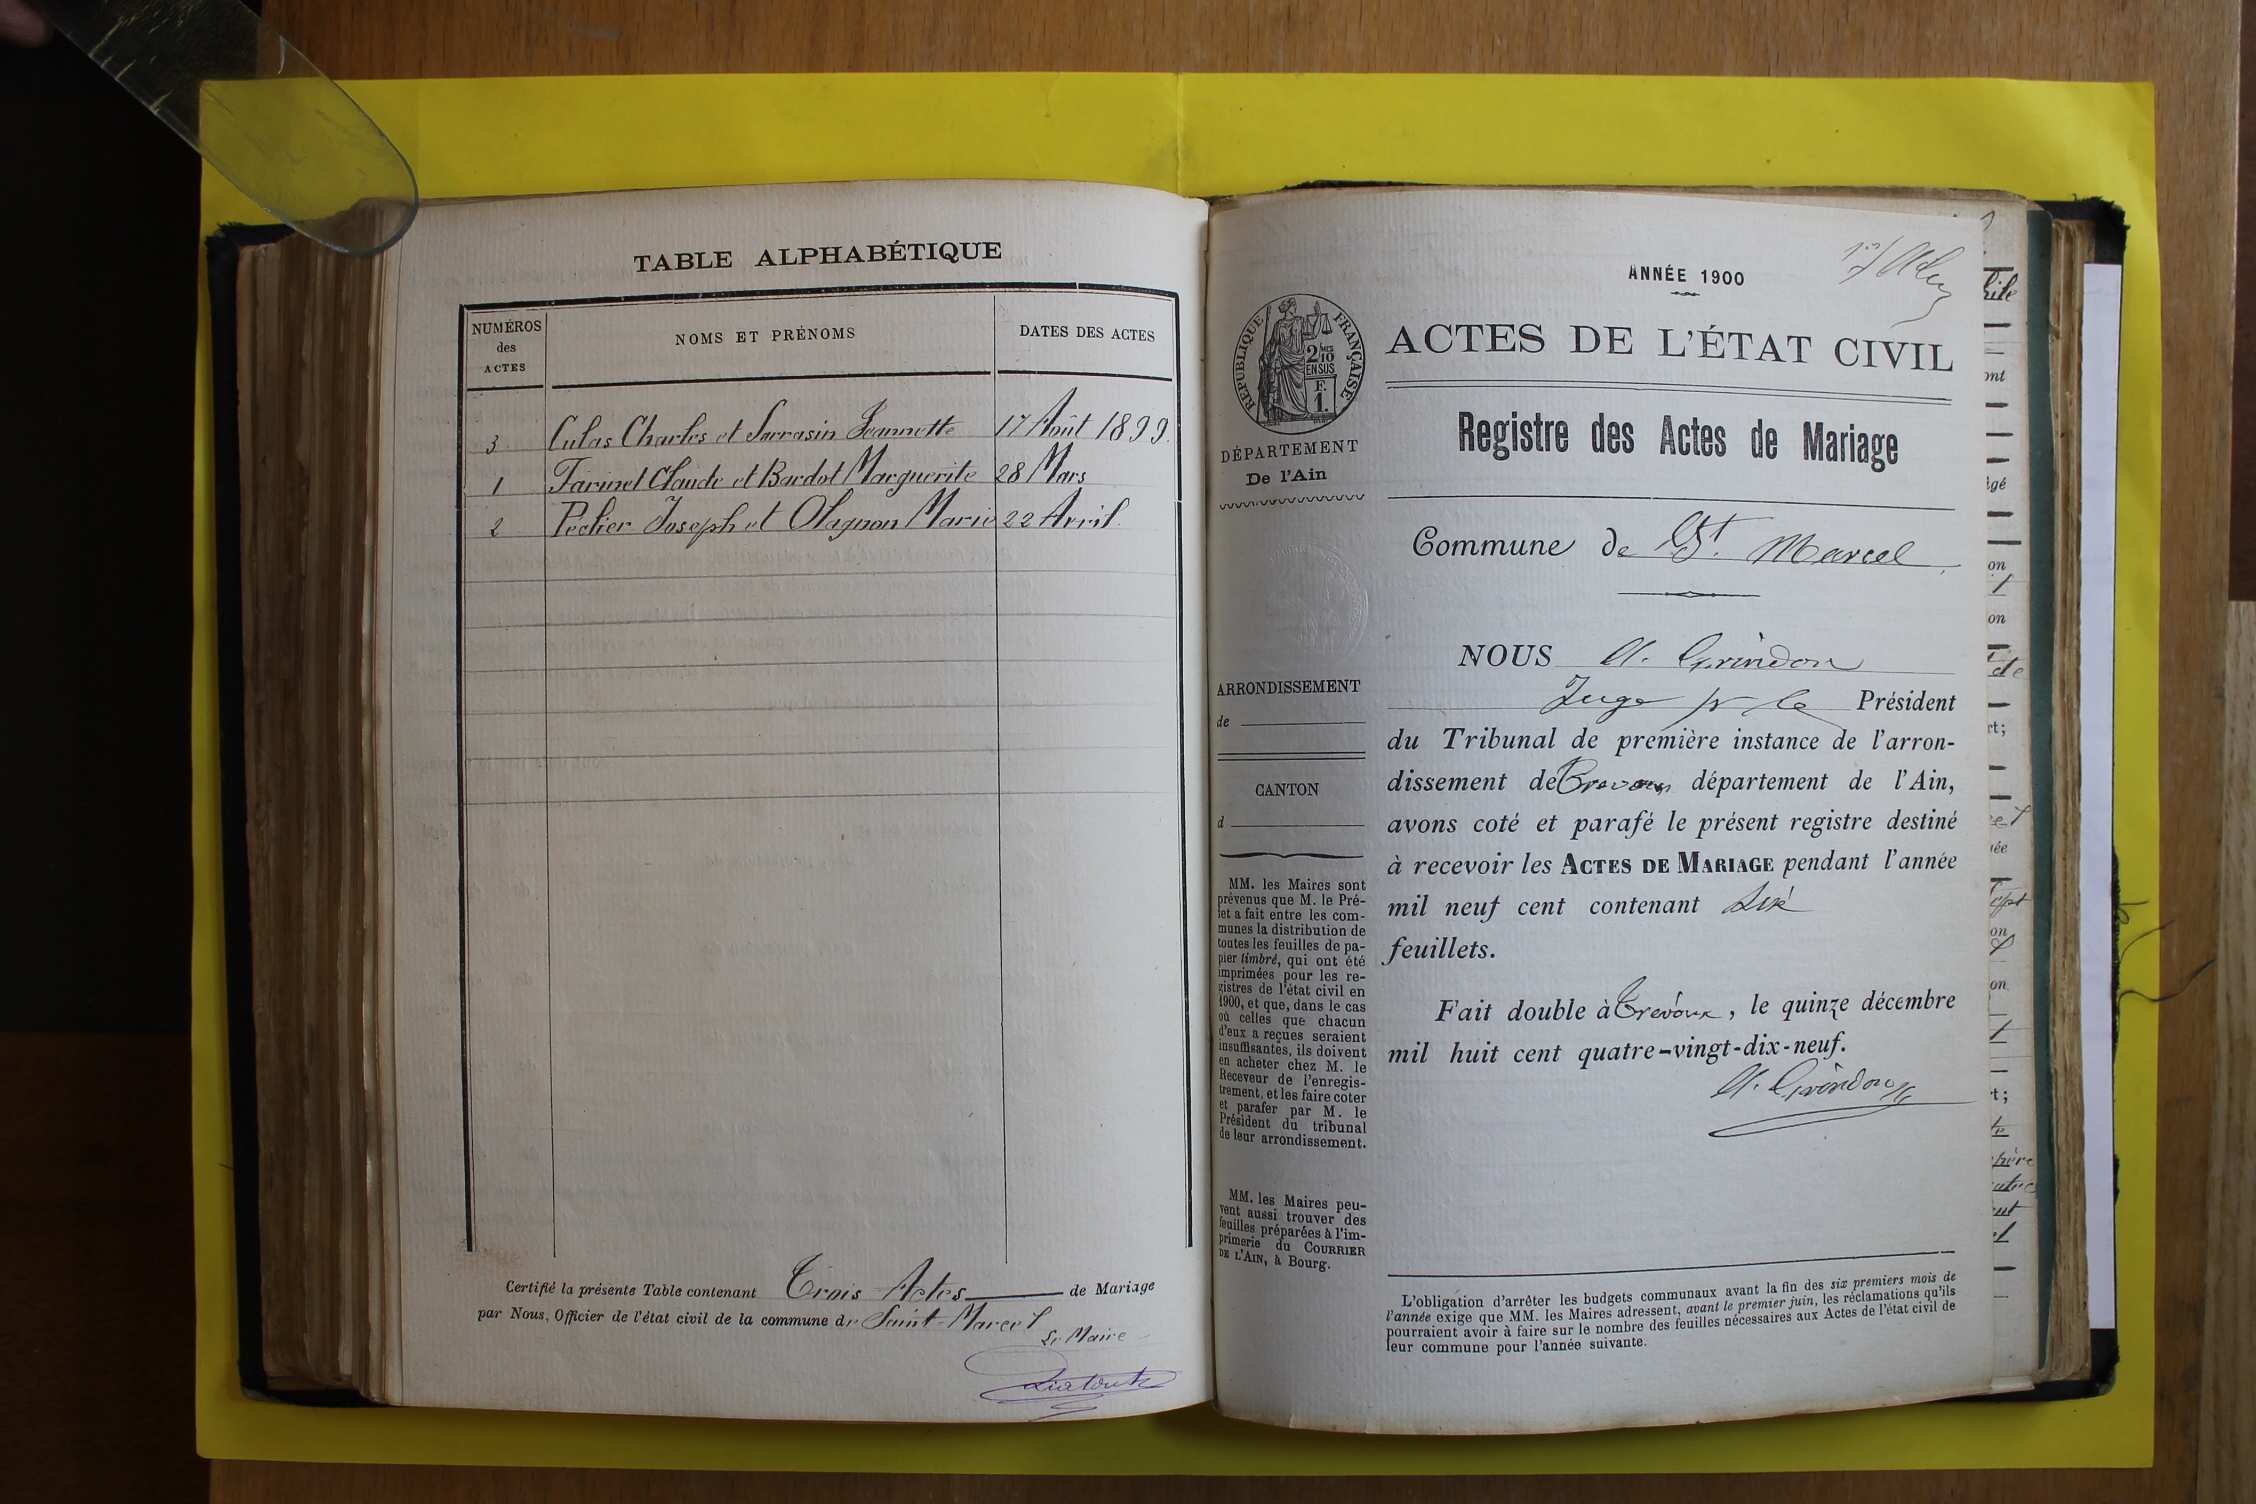 TABLE ALPHABÉTIQUE
NUMÉROS des ACTES
NOMS ET PRÉNOMS
DATES DES ACTES
3 Culas Charles et Sarrasin Jeannette 17 Août 1899.
1 Farinet Claude et Bardot Marguerite 28 Mars
2 Peclier Joseph et Olagnon Marie 22 Avril
Certifié la présente Table contenant Trois Actes de Mariage
par Nous, Officier de l'état civil de la commune de Saint-Marcel
Le Maire
ANNÉE 1900
RÉPUBLIQUE FRANÇAISE
2/10
EN SUS
F.
1.
ACTES DE L'ÉTAT CIVIL
DÉPARTEMENT
De l'Ain
Registre des Actes de Mariage
Commune de St. Marcel
ARRONDISSEMENT
de
CANTON
d
MM. les Maires sont
prévenus que M. le Pré-
fet a fait entre les com-
munes la distribution de
toutes les feuilles de pa-
pier timbré, qui ont été
imprimées pour les re-
gistres de l'état civil en
1900, et que, dans le cas
où celles que chacun
d'eux a reçues seraient
insuffisantes, ils doivent
en acheter chez M. le
Receveur de l'enregis-
trement, et les faire coter
et parafer par M. le
Président du tribunal
de leur arrondissement.
MM. les Maires peu-
vent aussi trouver des
feuilles préparées à l'im-
primerie du COURRIER
DE L'AIN, à Bourg.
NOUS A. Grindon
Juge pr le Président
du Tribunal de première instance de l'arron-
dissement de Trevoux département de l'Ain,
avons coté et parafé le présent registre destiné
à recevoir les ACTES DE MARIAGE pendant l'année
mil neuf cent contenant six
feuillets.
Fait double à Trévoux, le quinze décembre
mil huit cent quatre-vingt-dix-neuf.
A. Grindon
L'obligation d'arrêter les budgets communaux avant la fin des six premiers mois de
l'année exige que MM. les Maires adressent, avant le premier juin, les réclamations qu'ils
pourraient avoir à faire sur le nombre des feuilles nécessaires aux Actes de l'état civil de
leur commune pour l'année suivante.